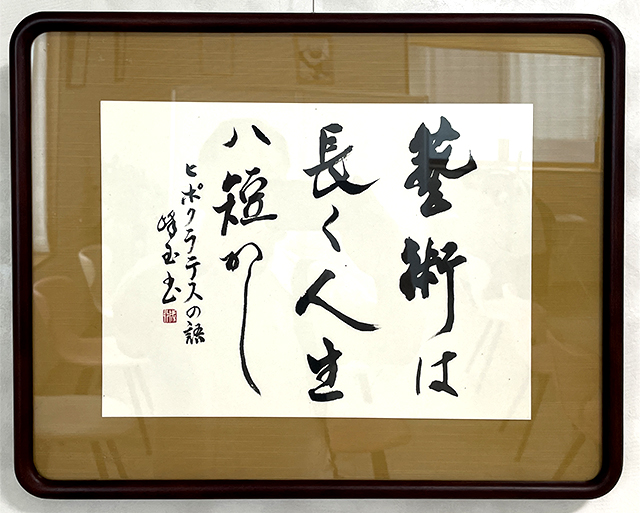 藝術は
長く人生
ハ短かし
ヒポクラテスの語
峰玉書